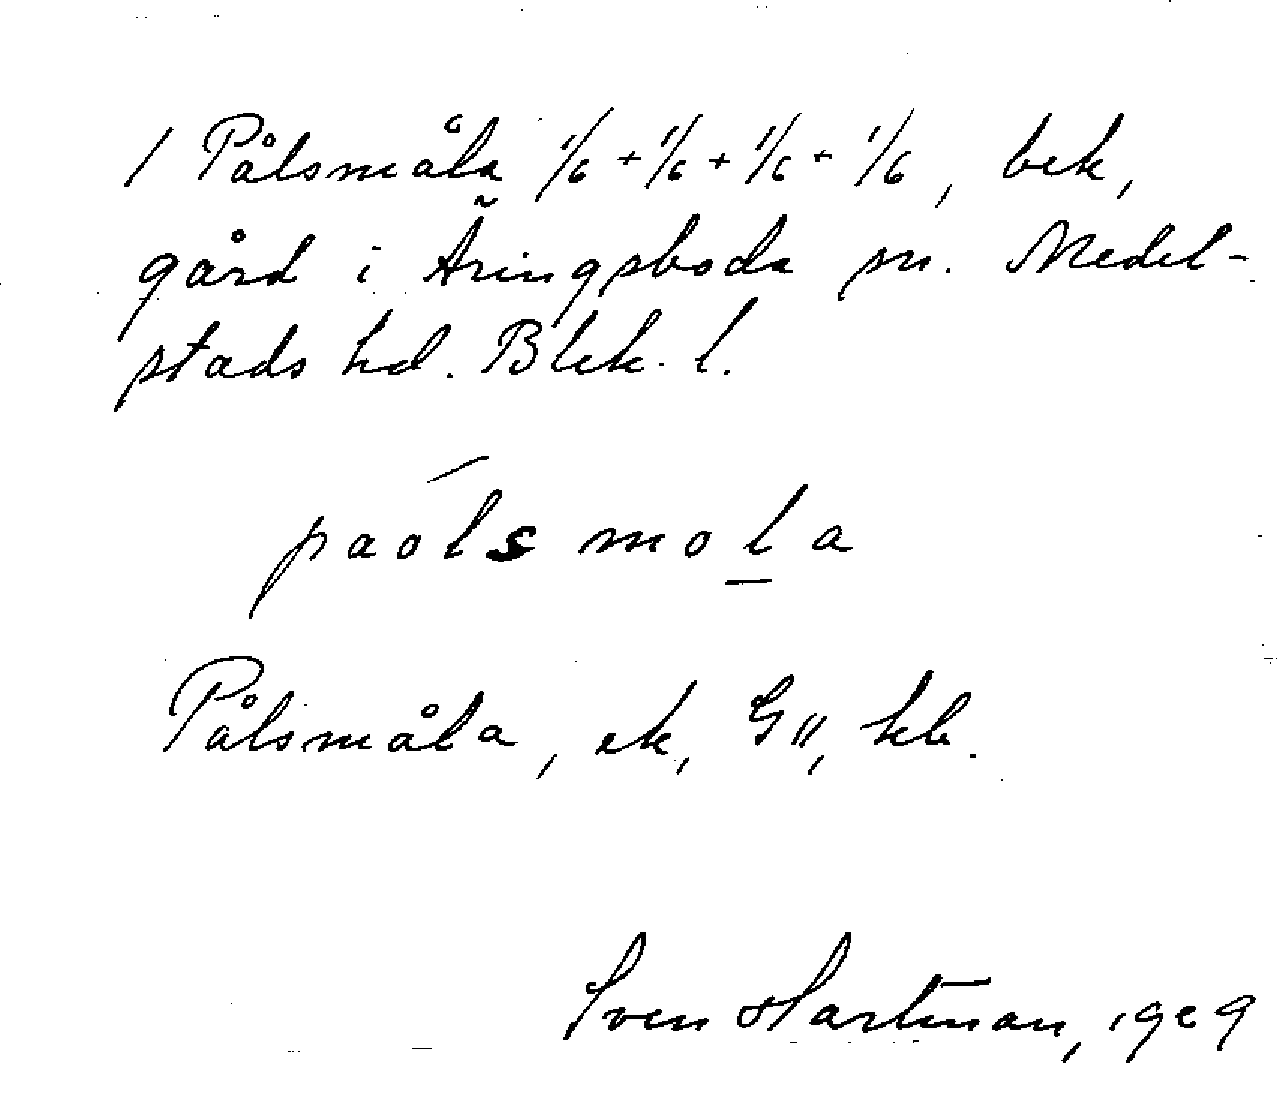 1 Pålsmåla 1/6 + 1/6 + 1/6 + 1/6, bek,
gård i Äringsboda sn. Medel-
stads hd. Blek. l.
paóls mola
Pålsmåla, ek, G", kb.
Sven Hartman, 1909